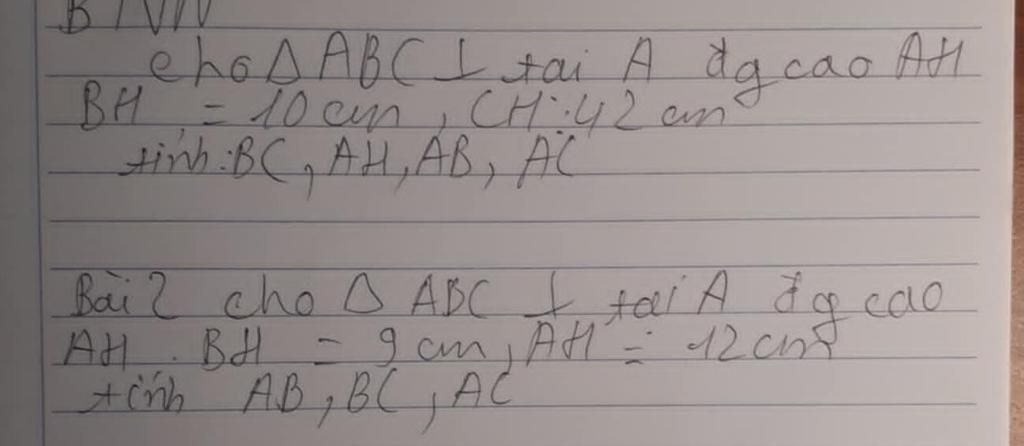 cho Δ ABC ⊥ tại A đg cao AH
BH = 10 cm, CH : 42 cm
tính : BC, AH, AB, AC
Bài 2 cho Δ ABC ⊥ tại A đg cao
AH . BH = 9 cm, AH = 12 cm
tính AB, BC, AC